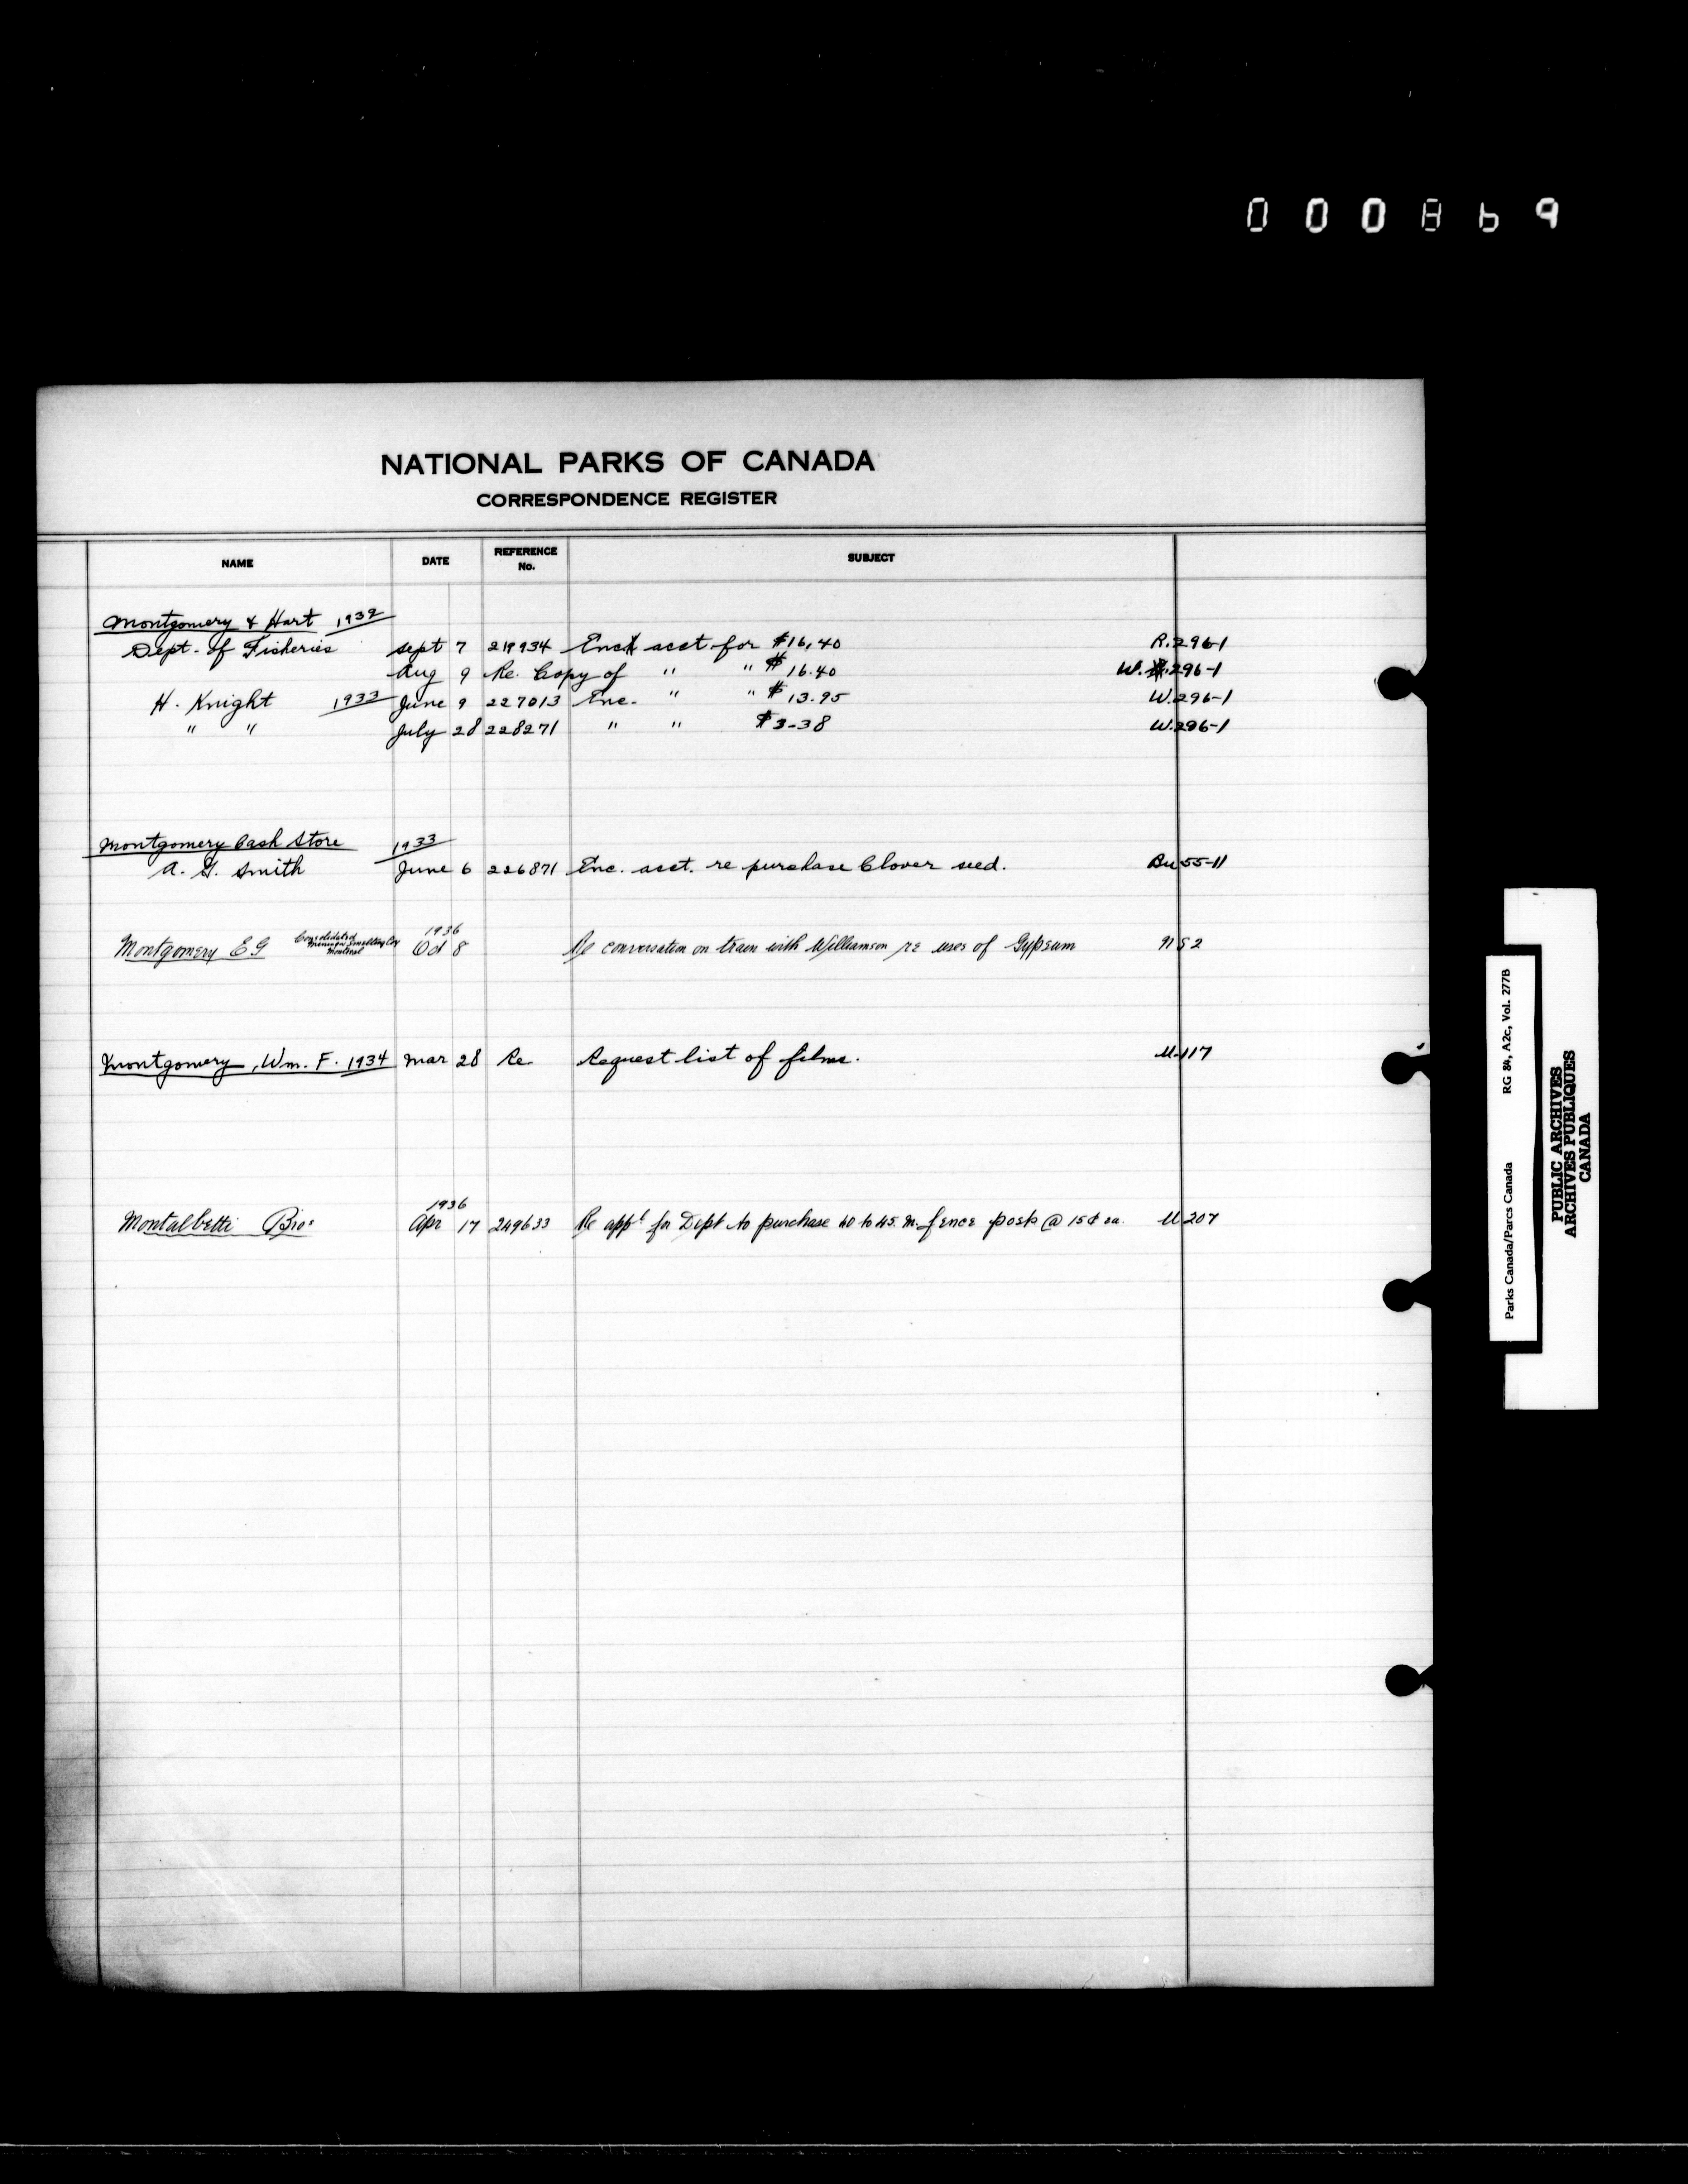 000869
NATIONAL PARKS OF CANADA
CORRESPONDENCE REGISTER
NAME DATE REFERENCE No. SUBJECT
Montgomery & Hart 1932
Dept. of Fisheries Sept 7 219934 Encl acct for $16.40 R.296-1
Aug 9 Re. Copy of " " $16.40 W.296-1
H. Knight 1933 June 9 227013 Enc. " " $13.95 W.296-1
" " July 28 228271 " " $3-38 W.296-1
Montgomery Cash Store 1933
A. G. Smith June 6 226871 Enc. acct. re purchase Clover seed. Bu 55-11
1936
Montgomery E G Consolidated Mining & Smelting Co Montreal Oct 8 Re conversation on train with Williamson re uses of Gypsum 52
Montgomery, Wm. F. 1934 Mar 28 Re Request list of films. U-117
1936
Montalbetti Bros Apr 17 249633 Re appl for Dept to purchase 40 to 45 M. fence posts @ 15¢ ea. U 207
Parks Canada/Parcs Canada RG 84, A2c, Vol. 277B
PUBLIC ARCHIVES
ARCHIVES PUBLIQUES
CANADA